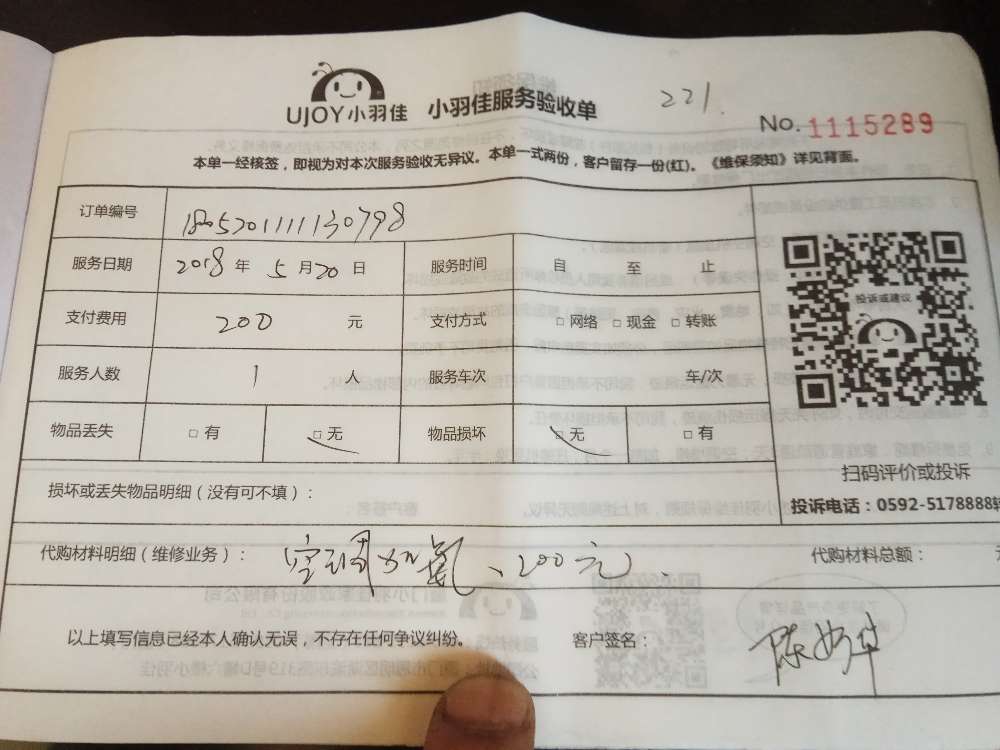 UJOY小羽佳 小羽佳服务验收单 221
No. 1115289
本单一经核签，即视为对本次服务验收无异议。本单一式两份，客户留存一份(红)。《维保须知》详见背面。
订单编号 180520111130798
服务日期 2018 年 5 月 20 日 服务时间 自 至 止
支付费用 200 元 支付方式 □ 网络 □ 现金 □ 转账
投诉或建议
服务人数 1 人 服务车次 车/次
物品丢失 □ 有 □ 无 物品损坏 □ 无 □ 有
扫码评价或投诉
损坏或丢失物品明细（没有可不填）：
投诉电话：0592-5178888转
代购材料明细（维修业务）： 空调加氟、200元、 代购材料总额：
以上填写信息已经本人确认无误，不存在任何争议纠纷。 客户签名：